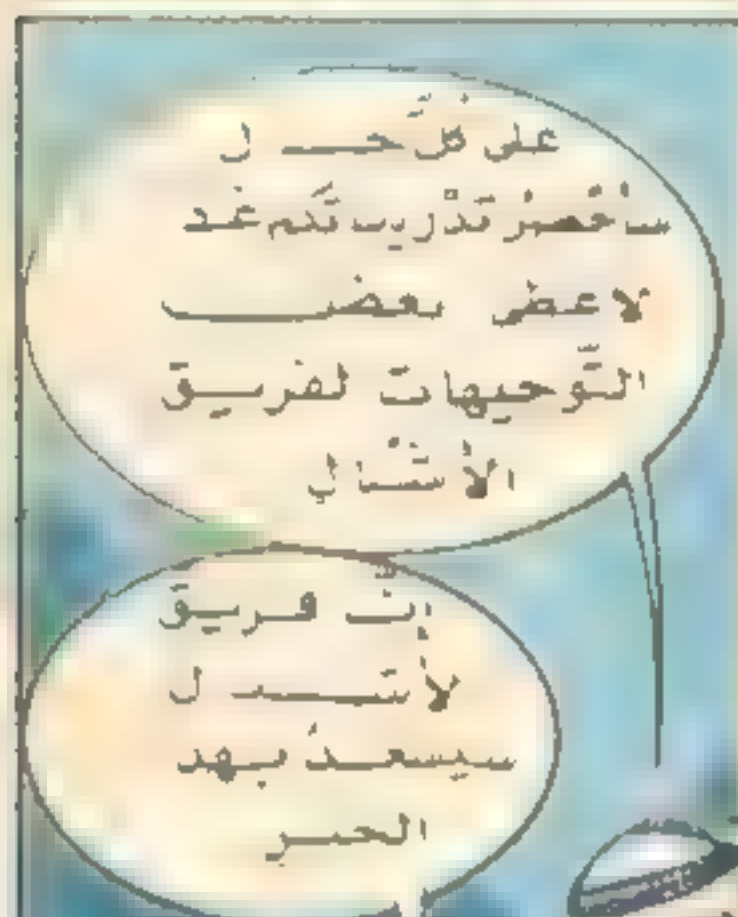 على كلّ حال
سأحضر تدريبكم غدا
لأعطي بعض
التّوجيهات لفريق
الأشبال
إنّ فريق
الأشبال
سيسعد بهذا
الخبر